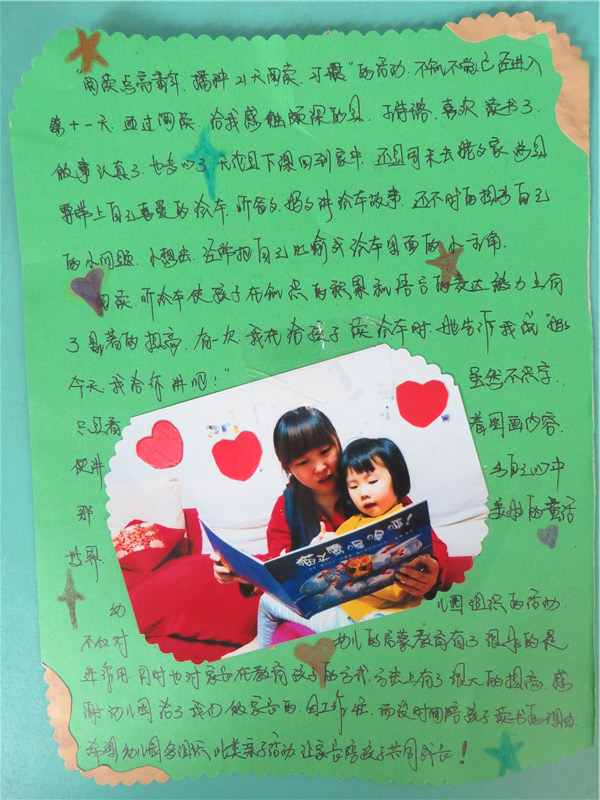 "阅读点亮童年，播种21天阅读习惯"的活动，不知不觉已经进入
第十一天，通过阅读，给我感触颇深的是，于诗谱喜欢读书了
做事认真了，也专心了，无论是下课回到家中，还是周末去姥姥家
要带上自己喜爱的绘本，听爸爸妈妈讲绘本故事，还不时的提出自己
的小问题，小想法，经常把自己比喻成绘本里面的小主角。
阅读，听绘本使孩子在知识的积累和语言的表达能力上有
了显著的提高，有一次我在给孩子读绘本时，她告诉我说"妈妈
今天我给你讲吧！" 虽然不识字，
只是看 看图画内容，
便讲 自己心中
那 的童话
世界
幼 儿园组织的活动
不仅对 幼儿的启蒙教育有了很好的促
进作用，同时也对家长在教育孩子的方式方法上有了很大的提高，感
谢幼儿园给了我们做家长的，因工作忙，而没时间陪孩子读书的机会
希望幼儿园多组织此类亲子活动，让家长陪孩子共同成长！